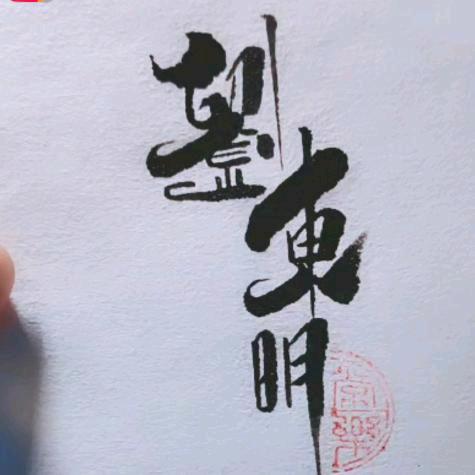 劉東明